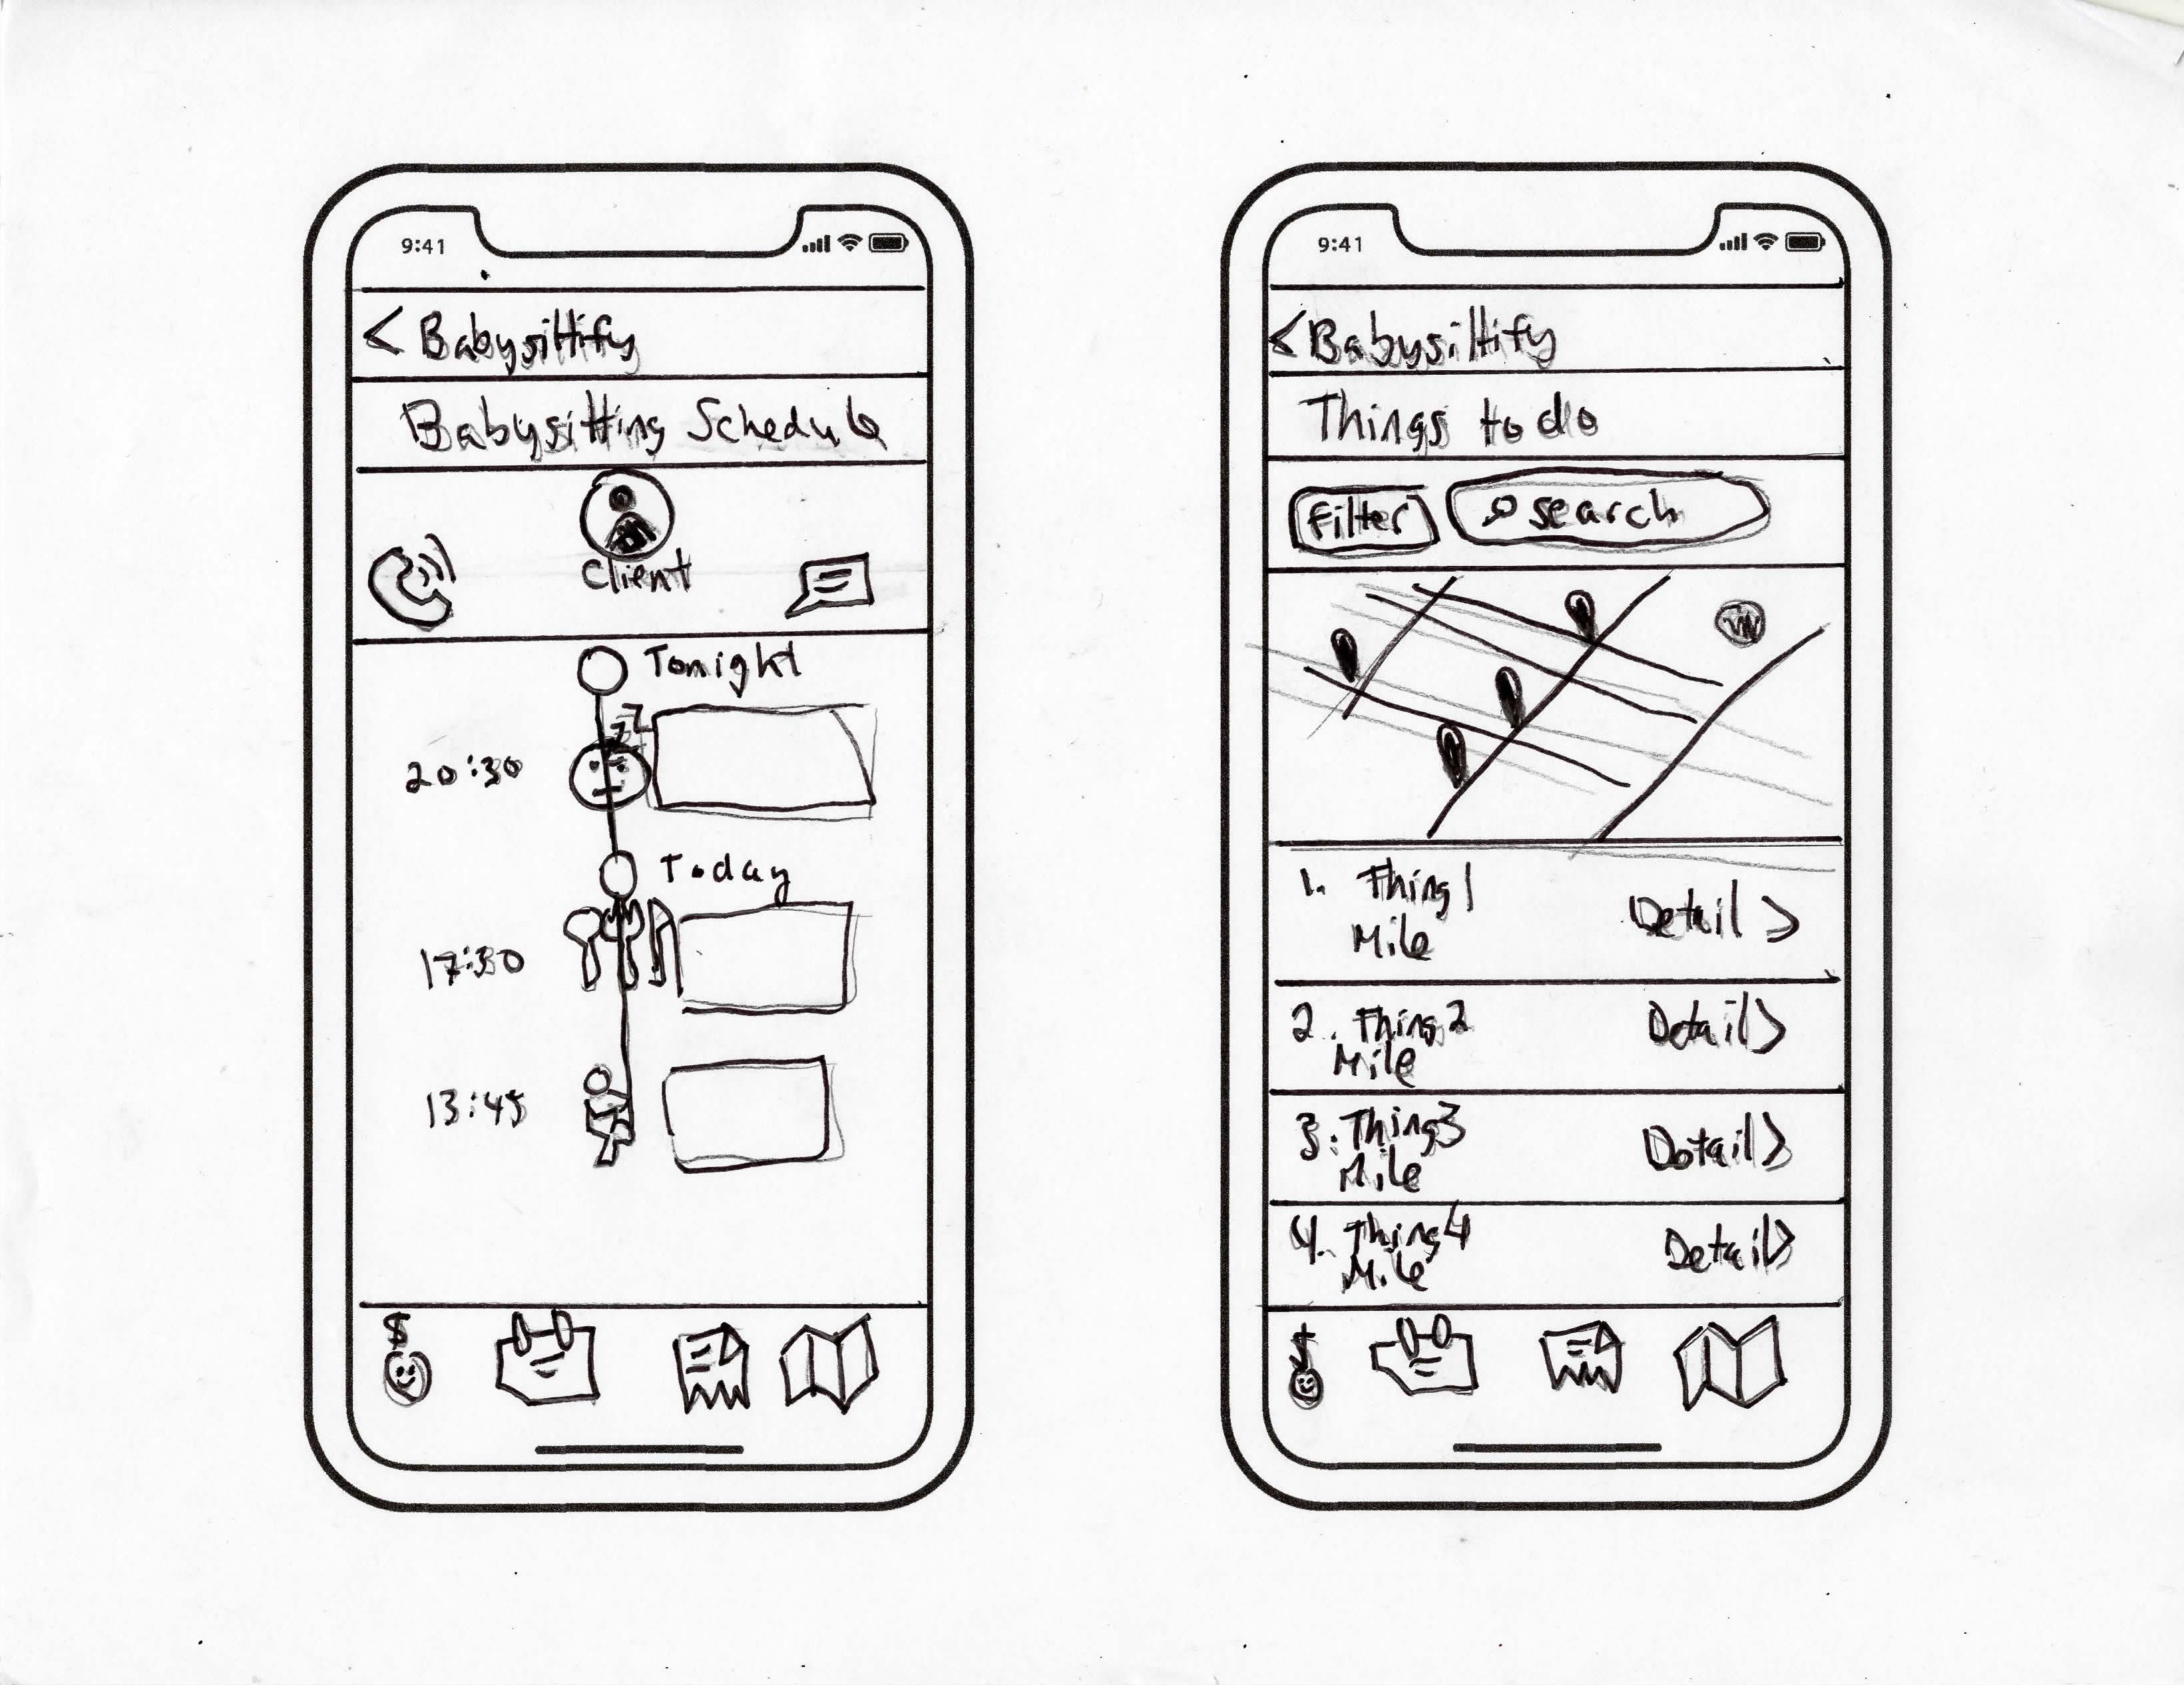 9:41
< Babysittify
Babysitting Schedule
Client
Tonight
zz
20:30
Today
17:30
13:45
$
9:41
< Babysittify
Things to do
Filter
search
1. Thing 1
Mile
Detail >
2. Thing 2
Mile
Detail >
3. Thing 3
Mile
Detail >
4. Thing 4
Mile
Detail >
$